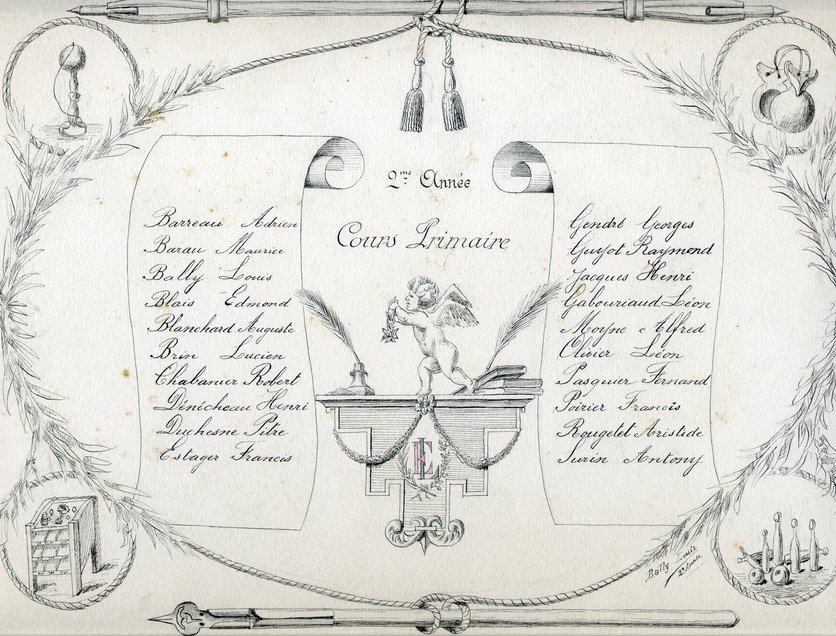 2me Année
Cours Primaire
Barreau Adrien
Barau Maurice
Bally Louis
Blais Edmond
Blanchard Auguste
Brin Lucien
Chabanier Robert
Dénécheau Henri
Duchesne Pitre
Estager Francis
Gendré Georges
Guyot Raymond
Jacques Henri
Gabouriaud Léon
Moyne Alfred
Olivier Léon
Pasquier Fernand
Poirier Francis
Rougelet Aristide
Surin Antony
Bally